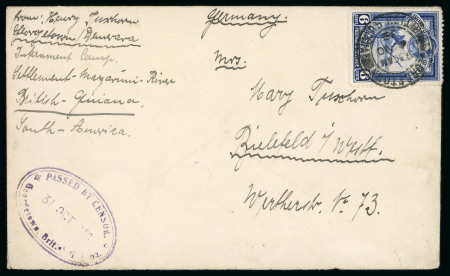 from: Henry Tuxhorn
Georgetown/Demerara
Internment Camp.
Settlement-Mazaruni-River
British-Guiana.
South-America.
Germany.
Mrs.
Mary Tuxhorn
Bielefeld i/Westf.
Wertherstr. No 73.
6 6
PASSED BY CENSOR.
31 OCT
Georgetown, British